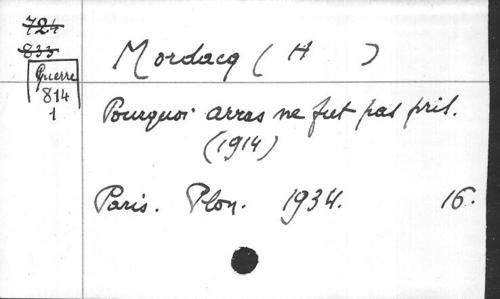 724
833
Guerre
814
1
Mordacq ( H )
Pourquoi arras ne fut pas pris.
(1914)
Paris. Plon. 1934. 16.